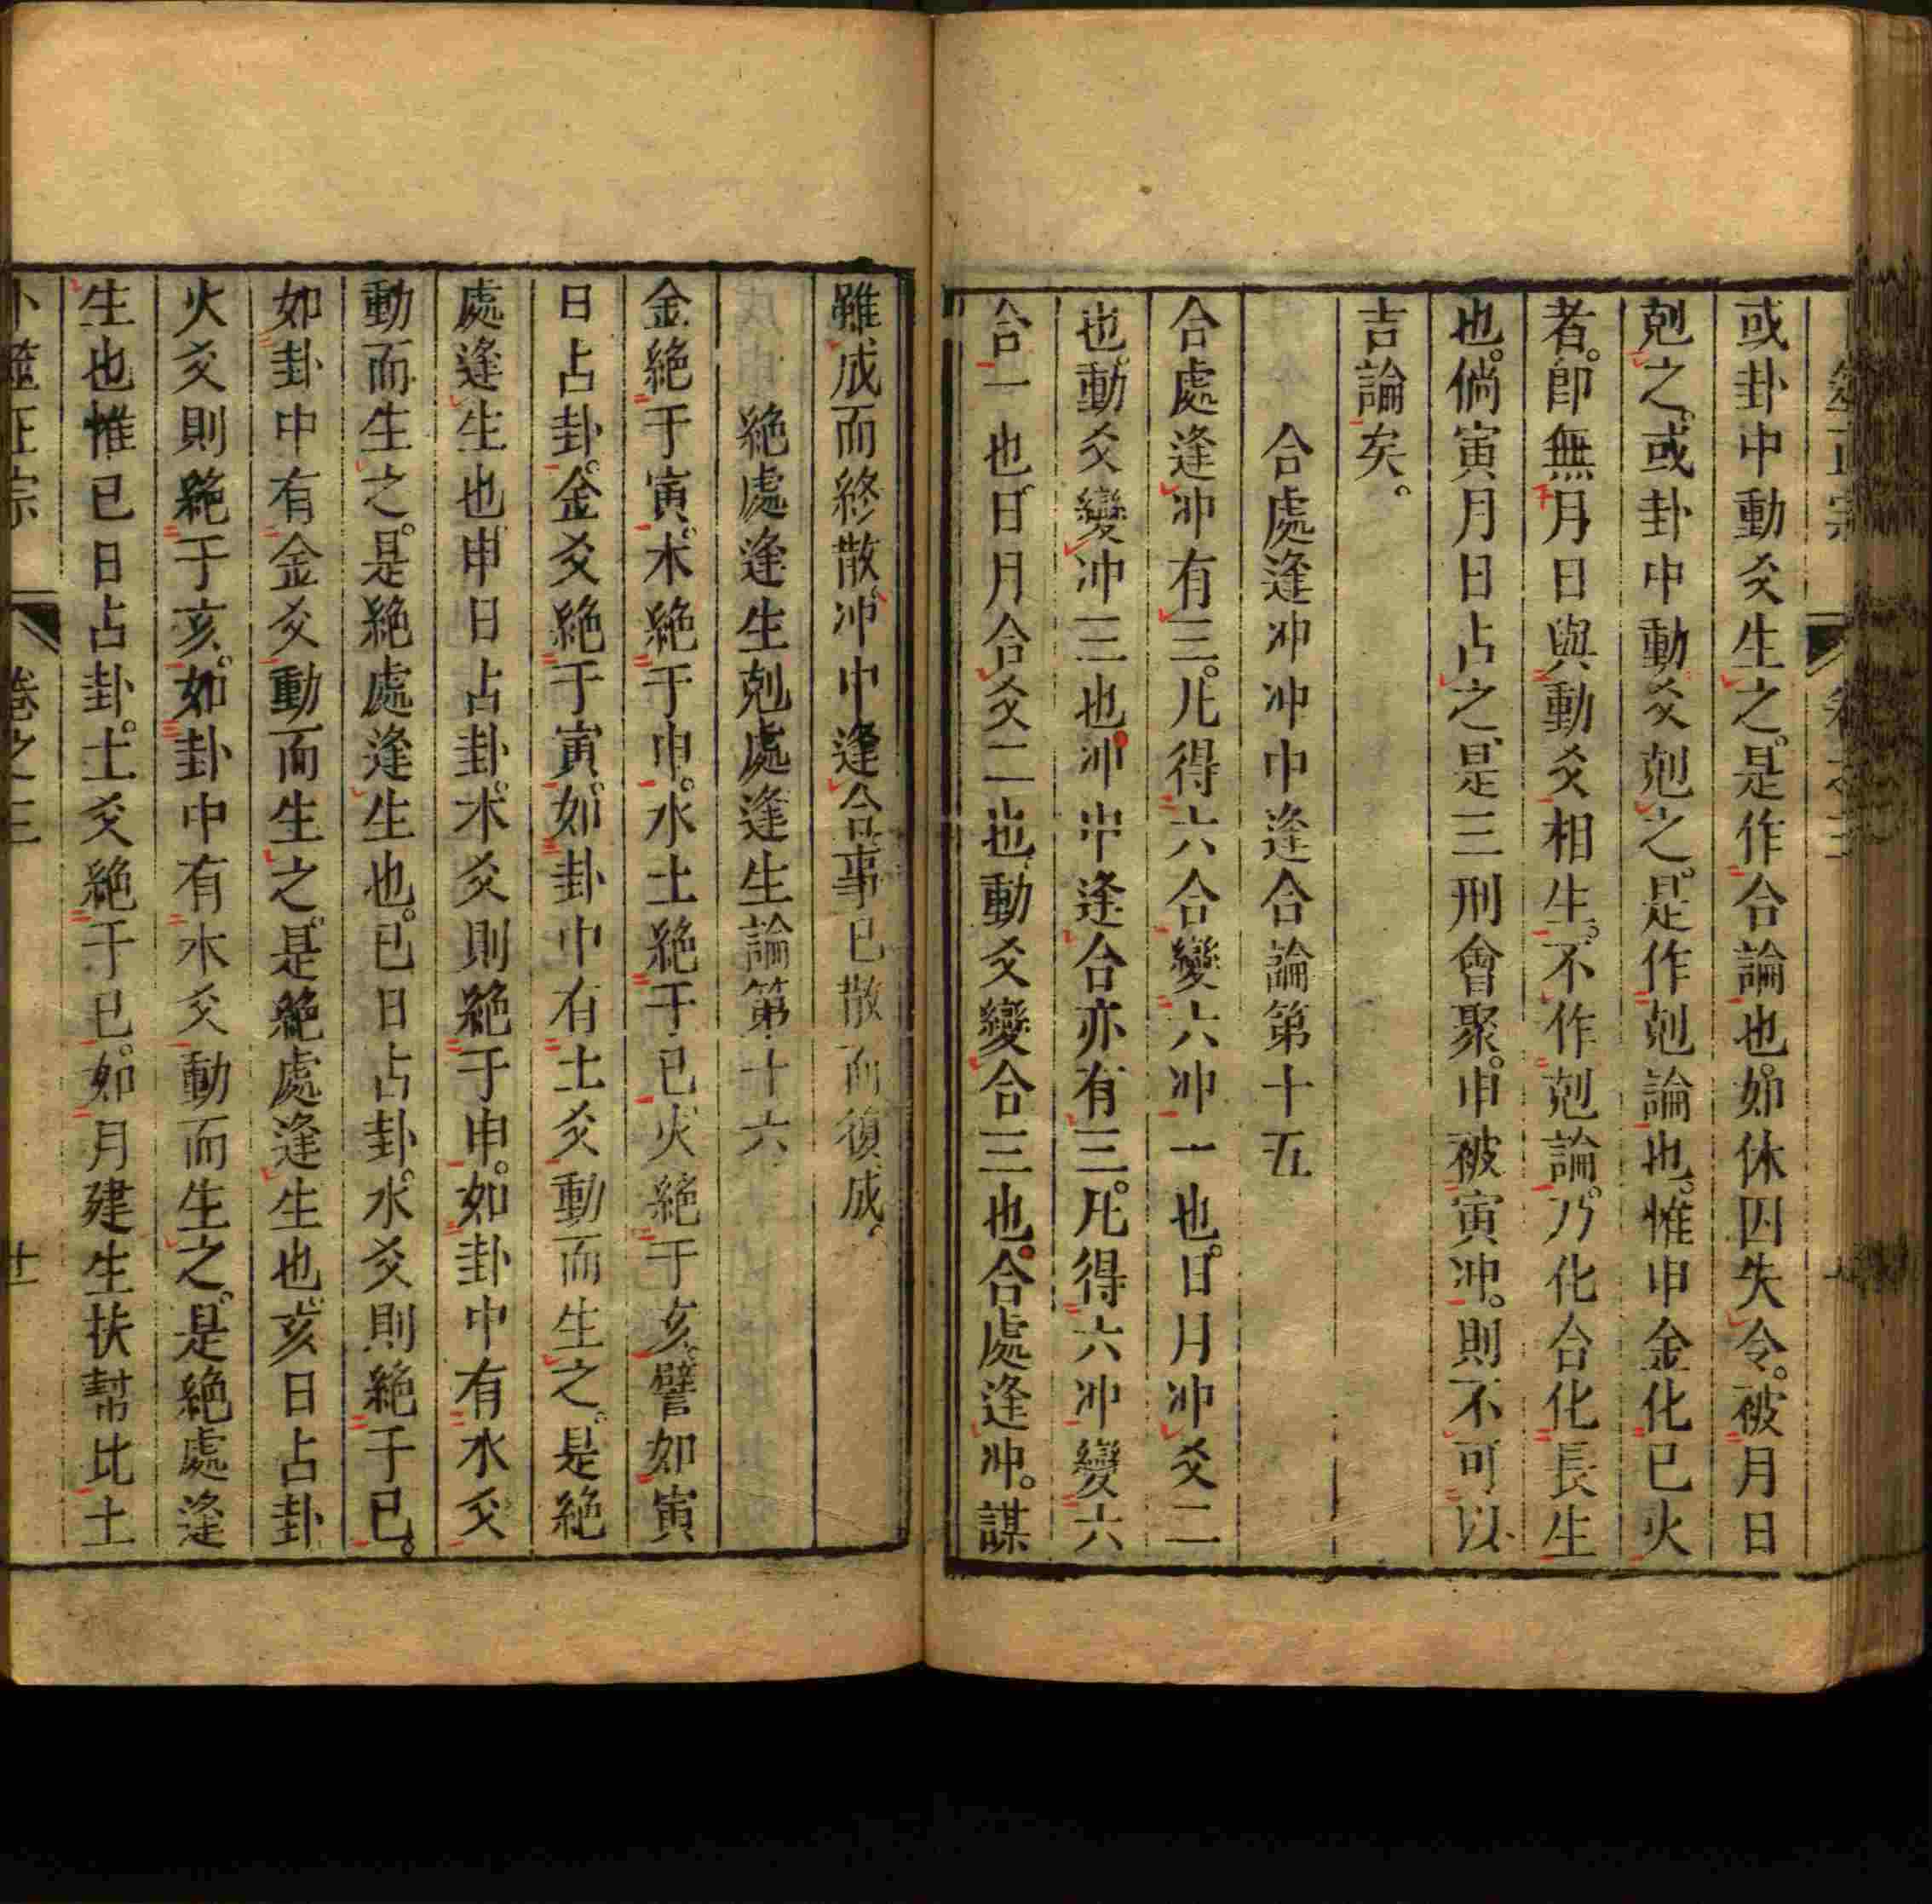 筮正宗 卷之三
或卦中動爻生之。是作合論也。如休囚失令。被月日
剋之。或卦中動爻剋之。是作剋論也。惟申金化巳火
者。即無月日與動爻相生。不作剋論。乃化合化長生
也。倘寅月日占之。是三刑會聚。申被寅冲。則不可以
吉論矣。
合處逢冲冲中逢合論第十五
合處逢冲有三。凡得六合變六冲一也。日月冲爻二
也。動爻變冲三也。冲中逢合亦有三。凡得六冲變六
合一也。日月合爻二也。動爻變合三也。合處逢冲。謀
雖成而終散。冲中逢合事已散而復成。
絕處逢生剋處逢生論第十六
金絕于寅。木絕于申。水土絕于巳火絕于亥。譬如寅
日占卦。金爻絕于寅。如卦中有土爻動而生之。是絕
處逢生也。申日占卦。木爻則絕于申。如卦中有水爻
動而生之。是絕處逢生也。巳日占卦。水爻則絕于巳。
如卦中有金爻動而生之。是絕處逢生也。亥日占卦
火爻則絕于亥。如卦中有木爻動而生之。是絕處逢
生也惟巳日占卦。土爻絕于巳。如月建生扶幇比土
卜筮正宗 卷之三 廿